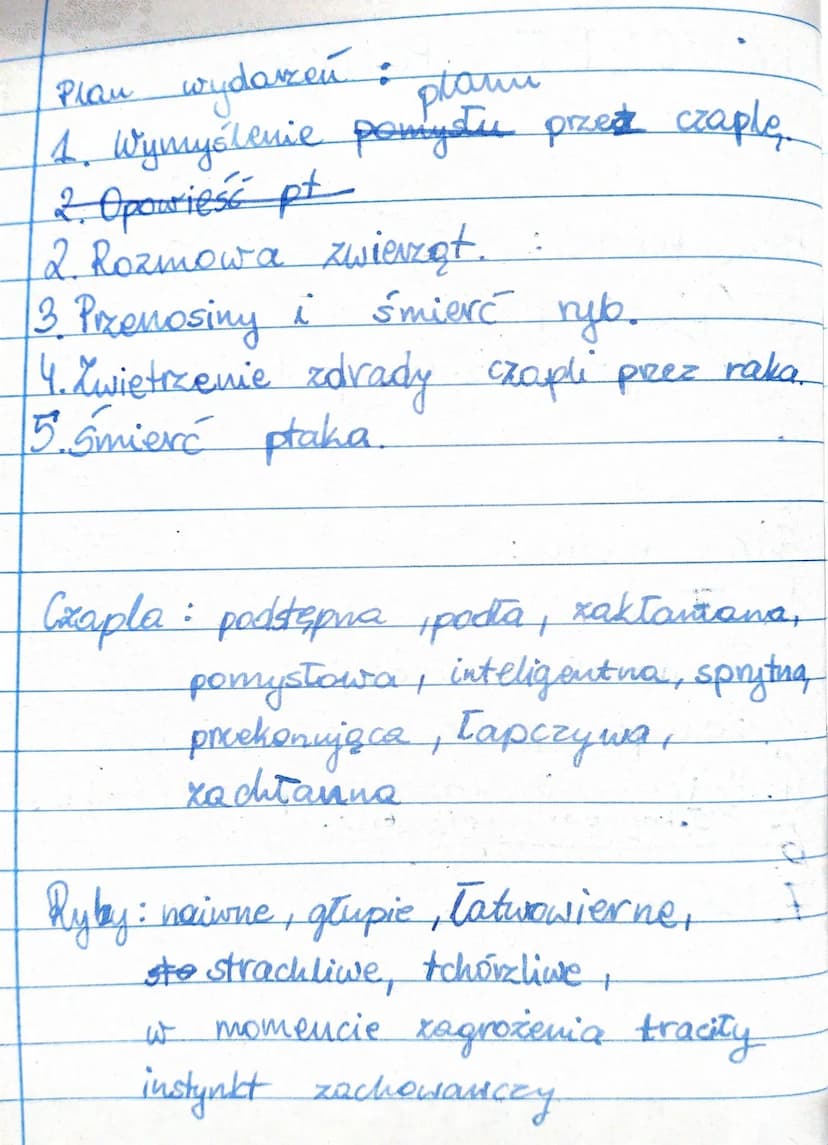 Plan wydarzeń :
1. Wymyślenie ~~pomysłu~~ planu przez czaplę.
~~2. Opowieść pt~~
2. Rozmowa zwierząt.
3. Przenosiny i śmierć ryb.
4. Zwietrzenie zdrady czapli przez raka.
5. Śmierć ptaka.
Czapla : podstępna , podła , zakłamana,
pomysłowa , inteligentna, sprytna,
przekonująca , łapczywa ,
zachłanna
Ryby : naiwne , głupie , łatwowierne,
~~sto~~ strachliwe, tchórzliwe ,
w momencie zagrożenia traciły
instynkt zachowawczy